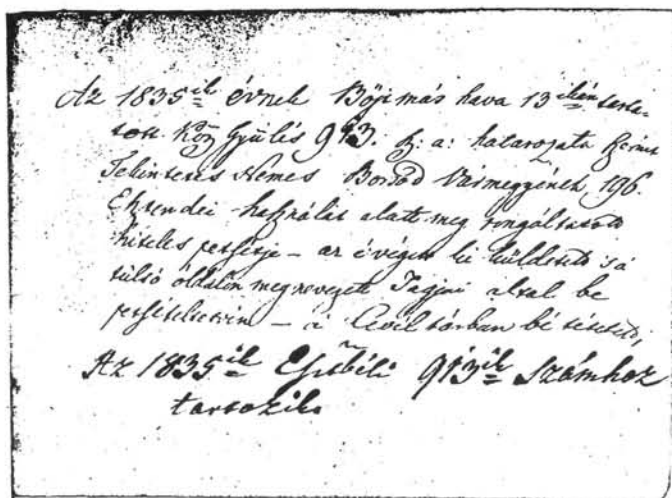 Az 1835ik évnek Böjtmás hava 13ikán tarta-
tott Köz Gyülés 913. sz: a: határozata szerint
Tekintetes Nemes Borsod Vármegyének, 196.
Esztendei használat alatt meg rongáltatott
hiteles petsétje – az é végett ki küldetett 's a
túlsó óldalon megnevezett Tagjai által be
petsételtetvén – a Levéltárban bé tétetett,
Az 1835ik Esztbéli 913ik számhoz
tartozik.